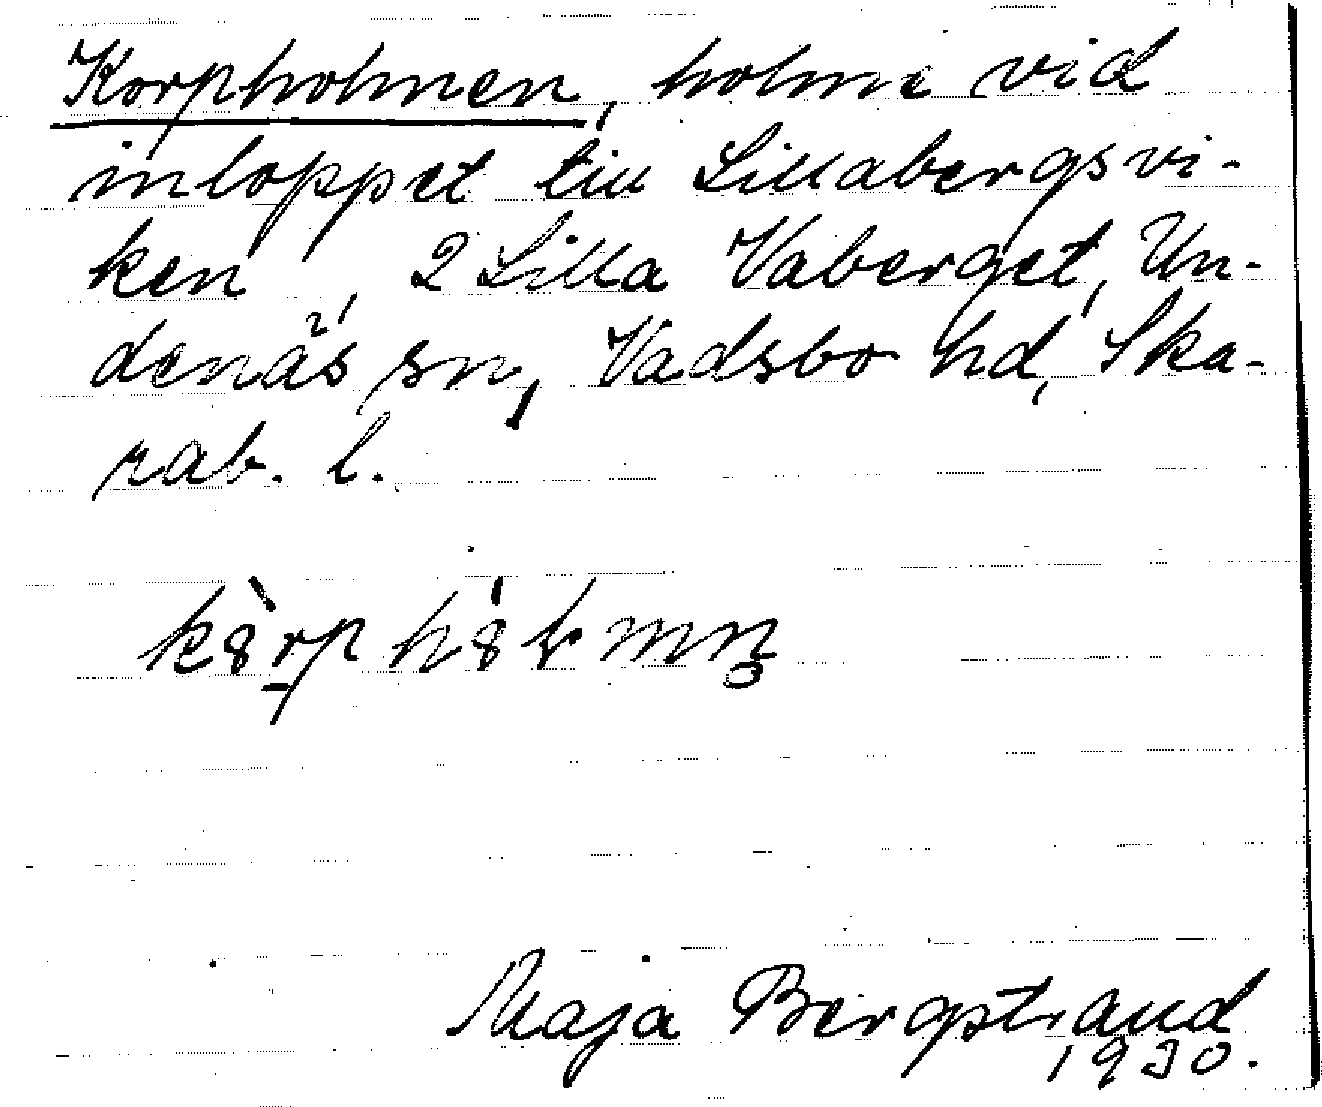 Korpholmen, holme vid
inloppet till Lillabergsvi-
ken, 2 Lilla Vaberget, Un-
denäs sn, Vadsbo hd, Ska-
rab. l.
Maja Bergstrand
1930.